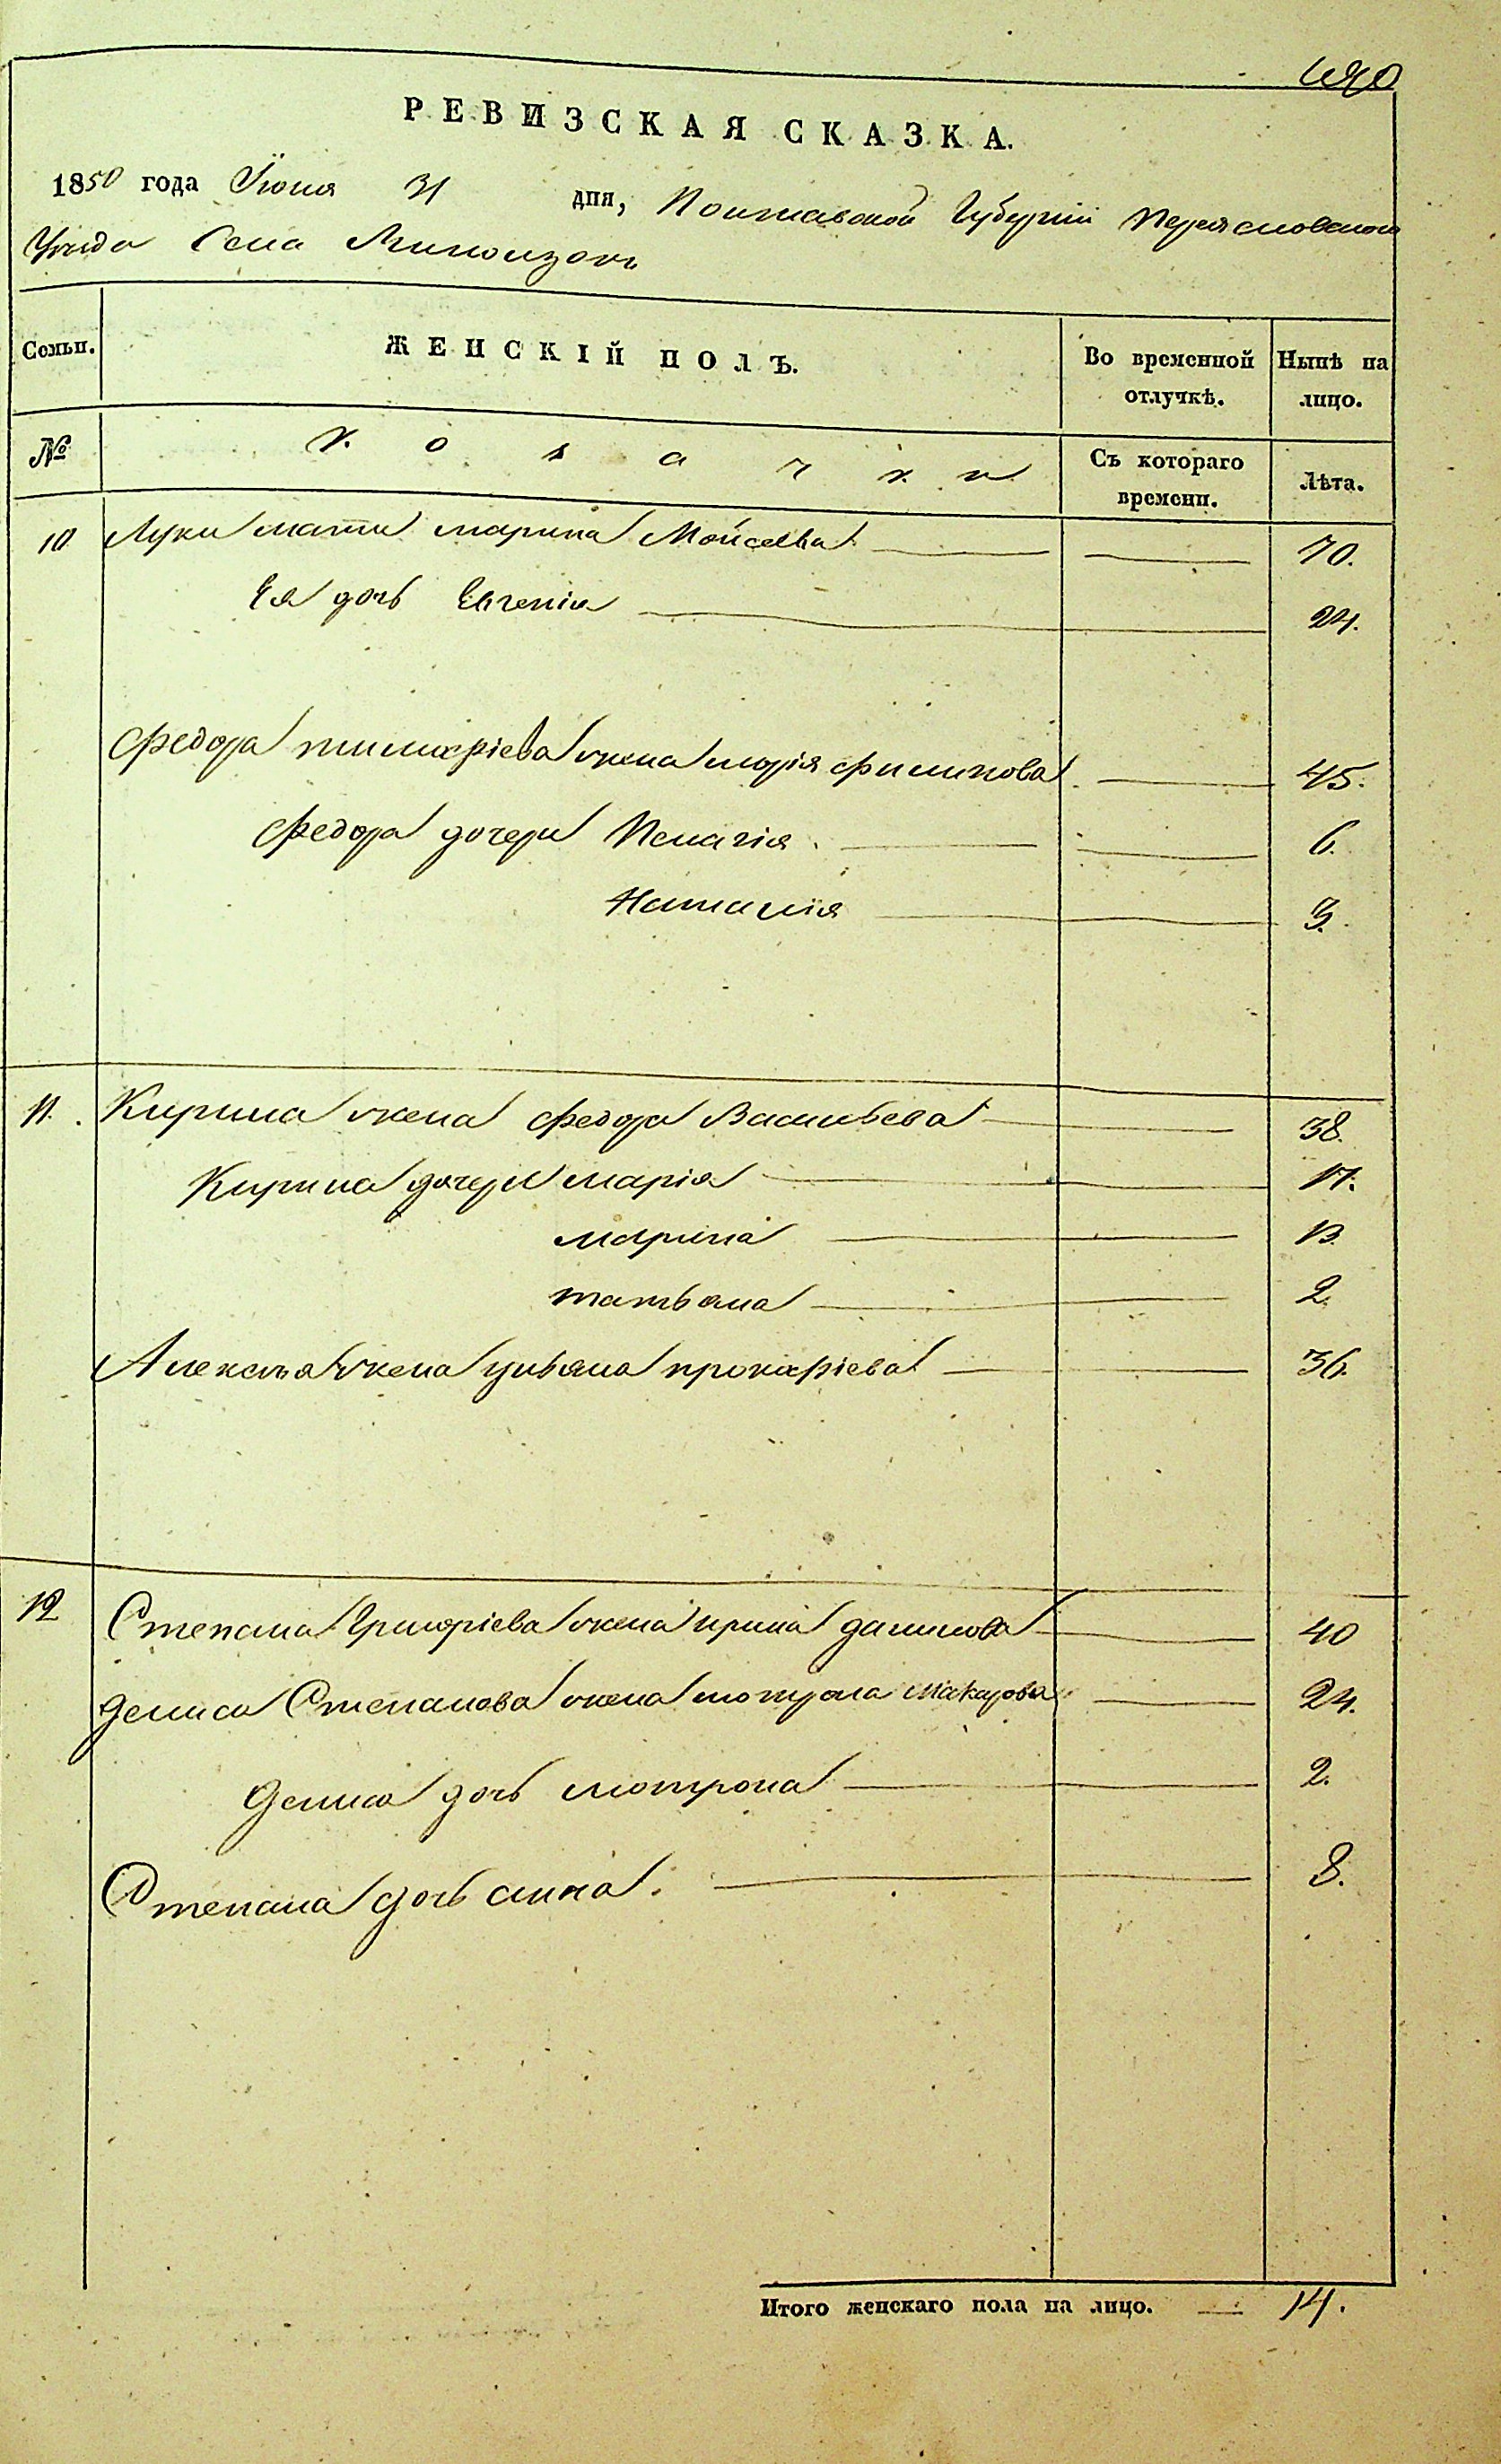 РЕВИЗСКАЯ СКАЗКА.
1850 года Іюня 31 дня, Полтавской Губерніи Переясловского
Уезда Села
Семьи. ЖЕНСКІЙ ПОЛЪ. Во временной отлучкѣ. Нынѣ на лицо.
№ Козачки Съ котораго времени. Лѣта.
10 Луки мати марина Мойсеева 70.
Ея дочь Евгенія 24.
Федора тимофіева жена марія филипова 45.
Федора дочери Пелагія 6.
Наталия 3.
11. Кирила жена федора Васильева 38.
Кирила дочери марія 17.
марина 13.
татьяна 2.
Алексѣя жена ульяна прокофіева 36.
12 Степана Григоріева жена ирина данилова 40
дениса Степанова жена мотрона Макарова 24.
дениса дочь мотрона 2.
Степана дочь анна. 8.
Итого женскаго пола на лицо. — 14.